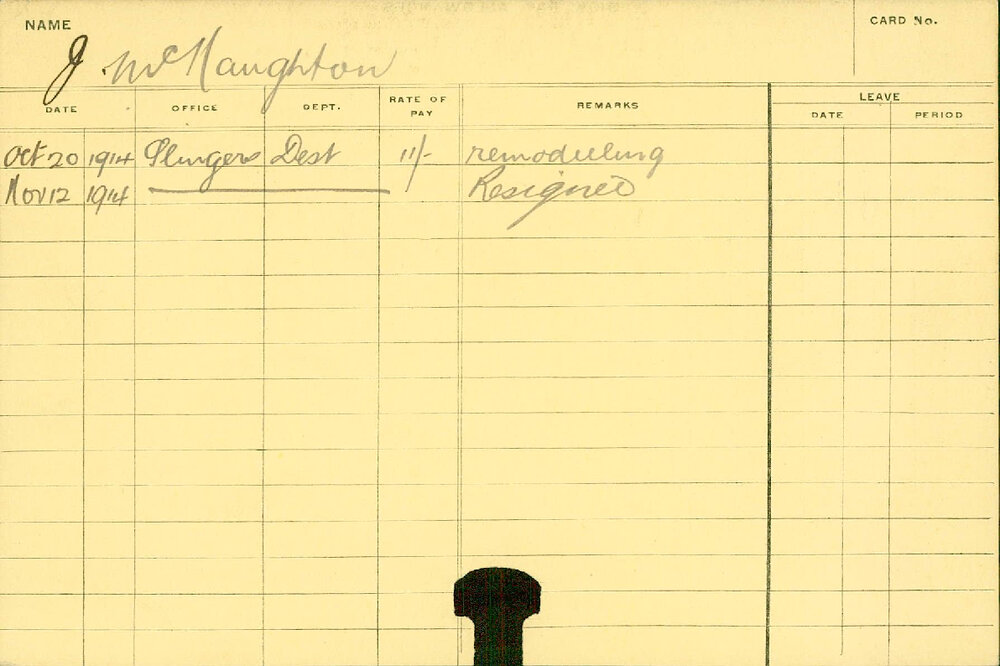 NAME
CARD No.
J. McNaughton
DATE OFFICE DEPT. RATE OF PAY REMARKS LEAVE
DATE PERIOD
Oct 20 1914 Dest 11/- remodelling
Nov 12 1914 Resigned